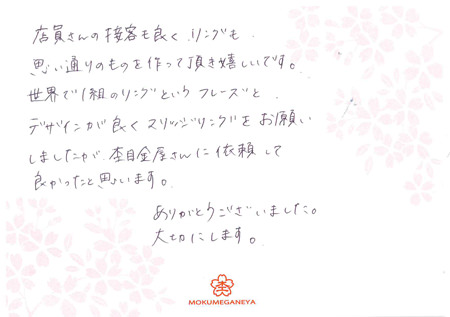 店員さんの接客も良く、リングも
思い通りのものを作って頂き嬉しいです。
世界で1組のリングというフレーズと
デザインが良くマリッジリングをお願い
しましたが、杢目金屋さんに依頼して
良かったと思います。
ありがとうございました。
大切にします。
杢
MOKUMEGANEYA